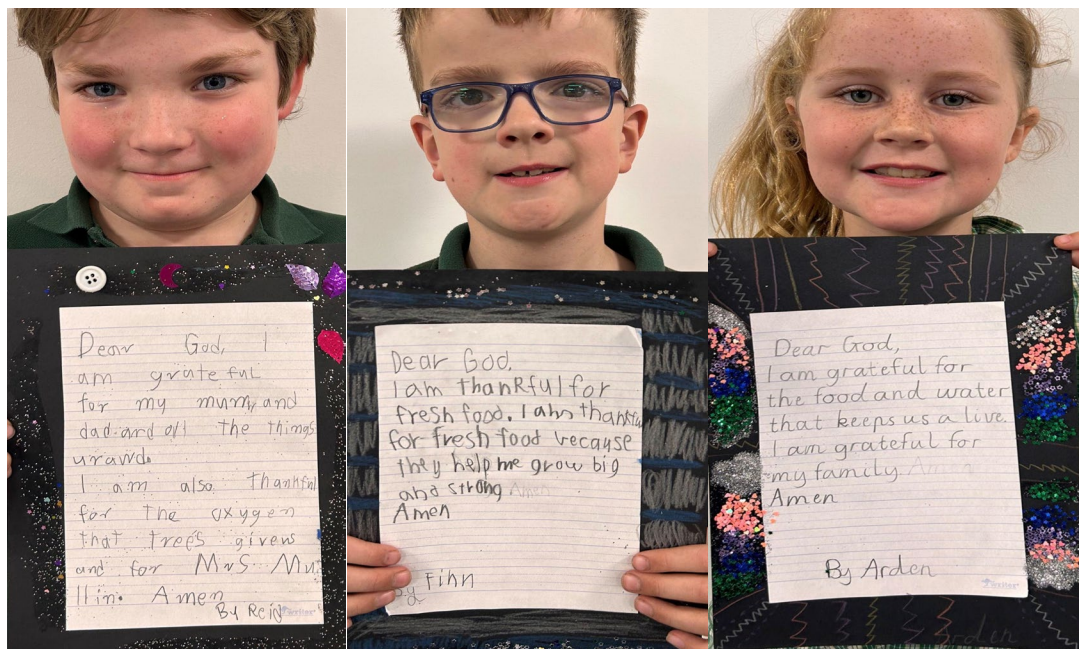 Dear God, I
am grateful
for my mum, and
dad and all the things
urawd.
I am also thankful
for the oxygen
that trees givens
and for Mrs Mu
llin. Amen
By Reid
Dear God,
I am thankful for
fresh food. I am thankful
for fresh food because
they help me grow big
and strong Amen
Amen
By Finn
Dear God,
I am grateful for
the food and water
that keeps us a live.
I am grateful for
my family Amen
Amen
By Arden
Arden